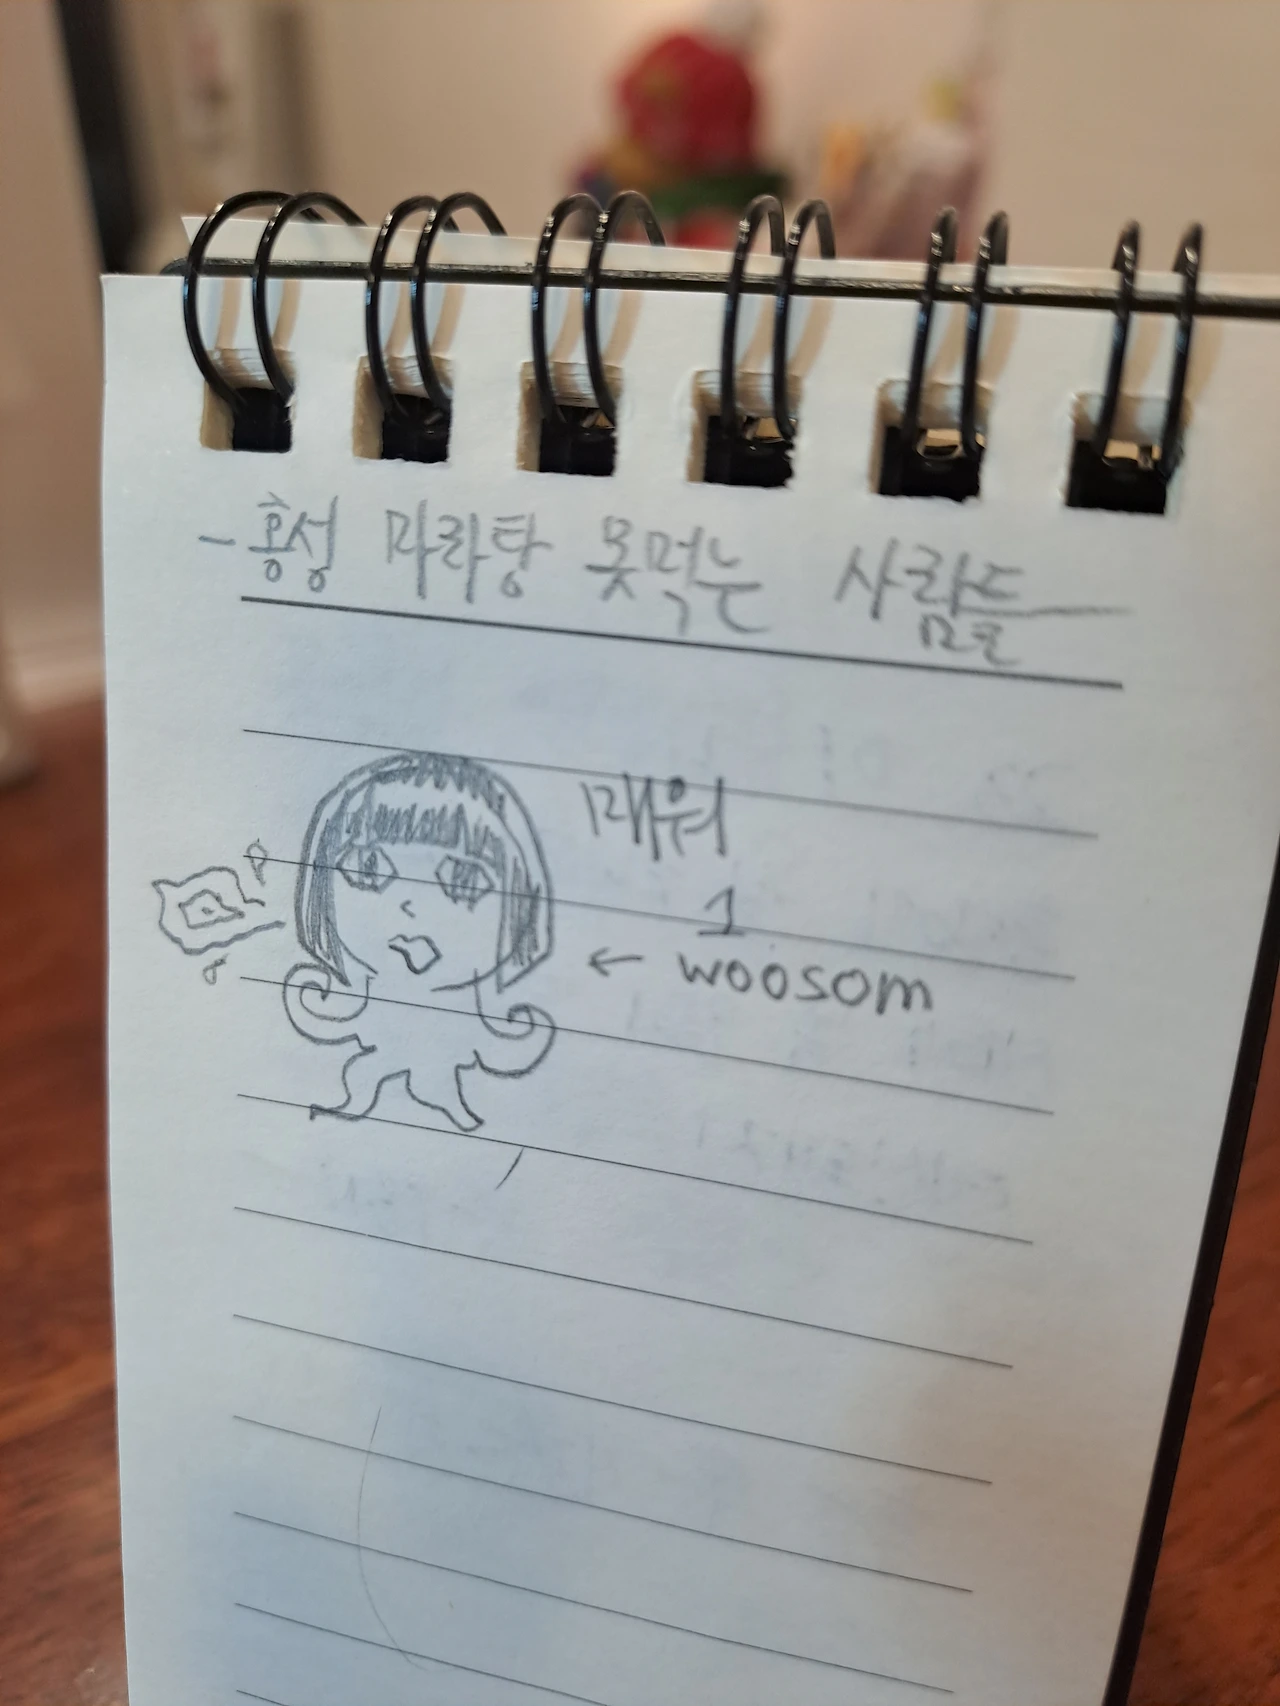 - 홍성 마라탕 못먹는 사람들
매워
1
← woosom